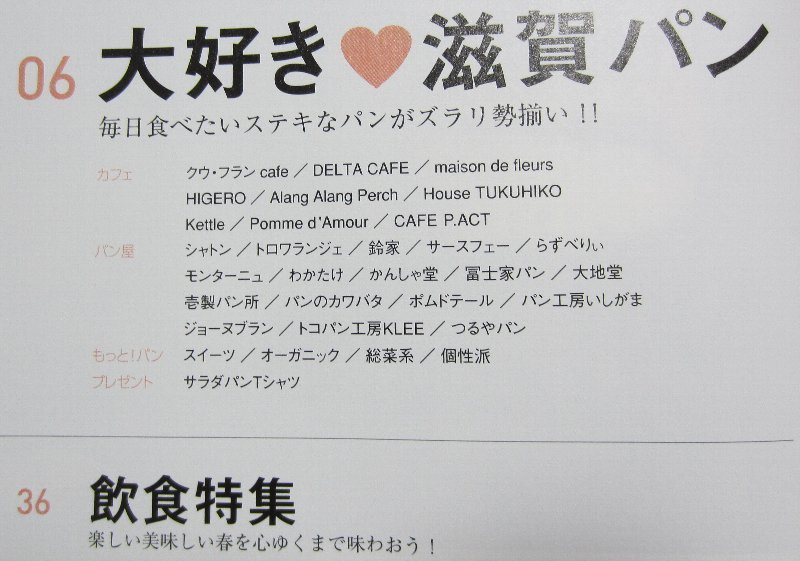 06 大好き♥滋賀パン
毎日食べたいステキなパンがズラリ勢揃い!!
カフェ クウ・フラン cafe ／ DELTA CAFE ／ maison de fleurs
HIGERO ／ Alang Alang Perch ／ House TUKUHIKO
Kettle ／ Pomme d'Amour ／ CAFE P.ACT
パン屋 シャトン ／ トロワランジェ ／ 鈴家 ／ サースフェー ／ らずべりぃ
モンターニュ ／ わかたけ ／ かんしゃ堂 ／ 冨士家パン ／ 大地堂
壱製パン所 ／ パンのカワバタ ／ ポムドテール ／ パン工房いしがま
ジョーヌブラン ／ トコパン工房KLEE ／ つるやパン
もっと!パン スイーツ ／ オーガニック ／ 総菜系 ／ 個性派
プレゼント サラダパンTシャツ
36 飲食特集
楽しい美味しい春を心ゆくまで味わおう!